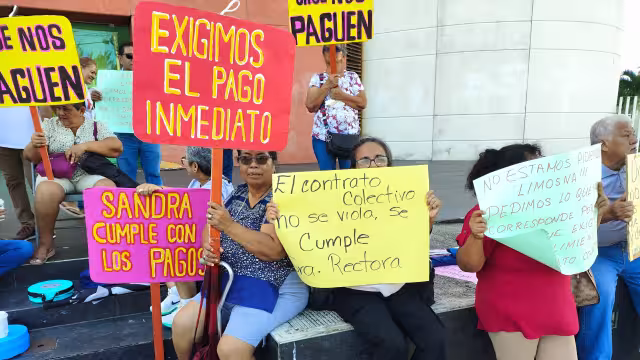 E NOS
AGUEN
EXIGIMOS
EL PAGO
INMEDIATO
PAGUEN
SANDRA
CUMPLE CON
LOS PAGOS
El contrato
Colectivo
no se viola, se
Cumple
ra. Rectora
NO ESTAMOS
LIMOSNA!!!
PEDIMOS LO QUE
CORRESPONDE